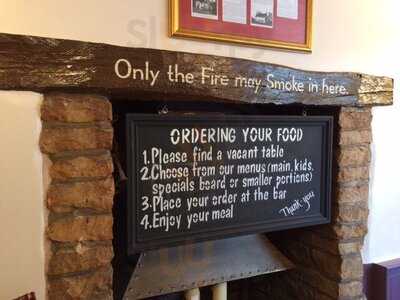 Only the Fire may Smoke in here.
ORDERING YOUR FOOD
1. Please find a vacant table
2. Choose from our menus (main, kids,
specials board or smaller portions)
3. Place your order at the bar
4. Enjoy your meal
Thank you